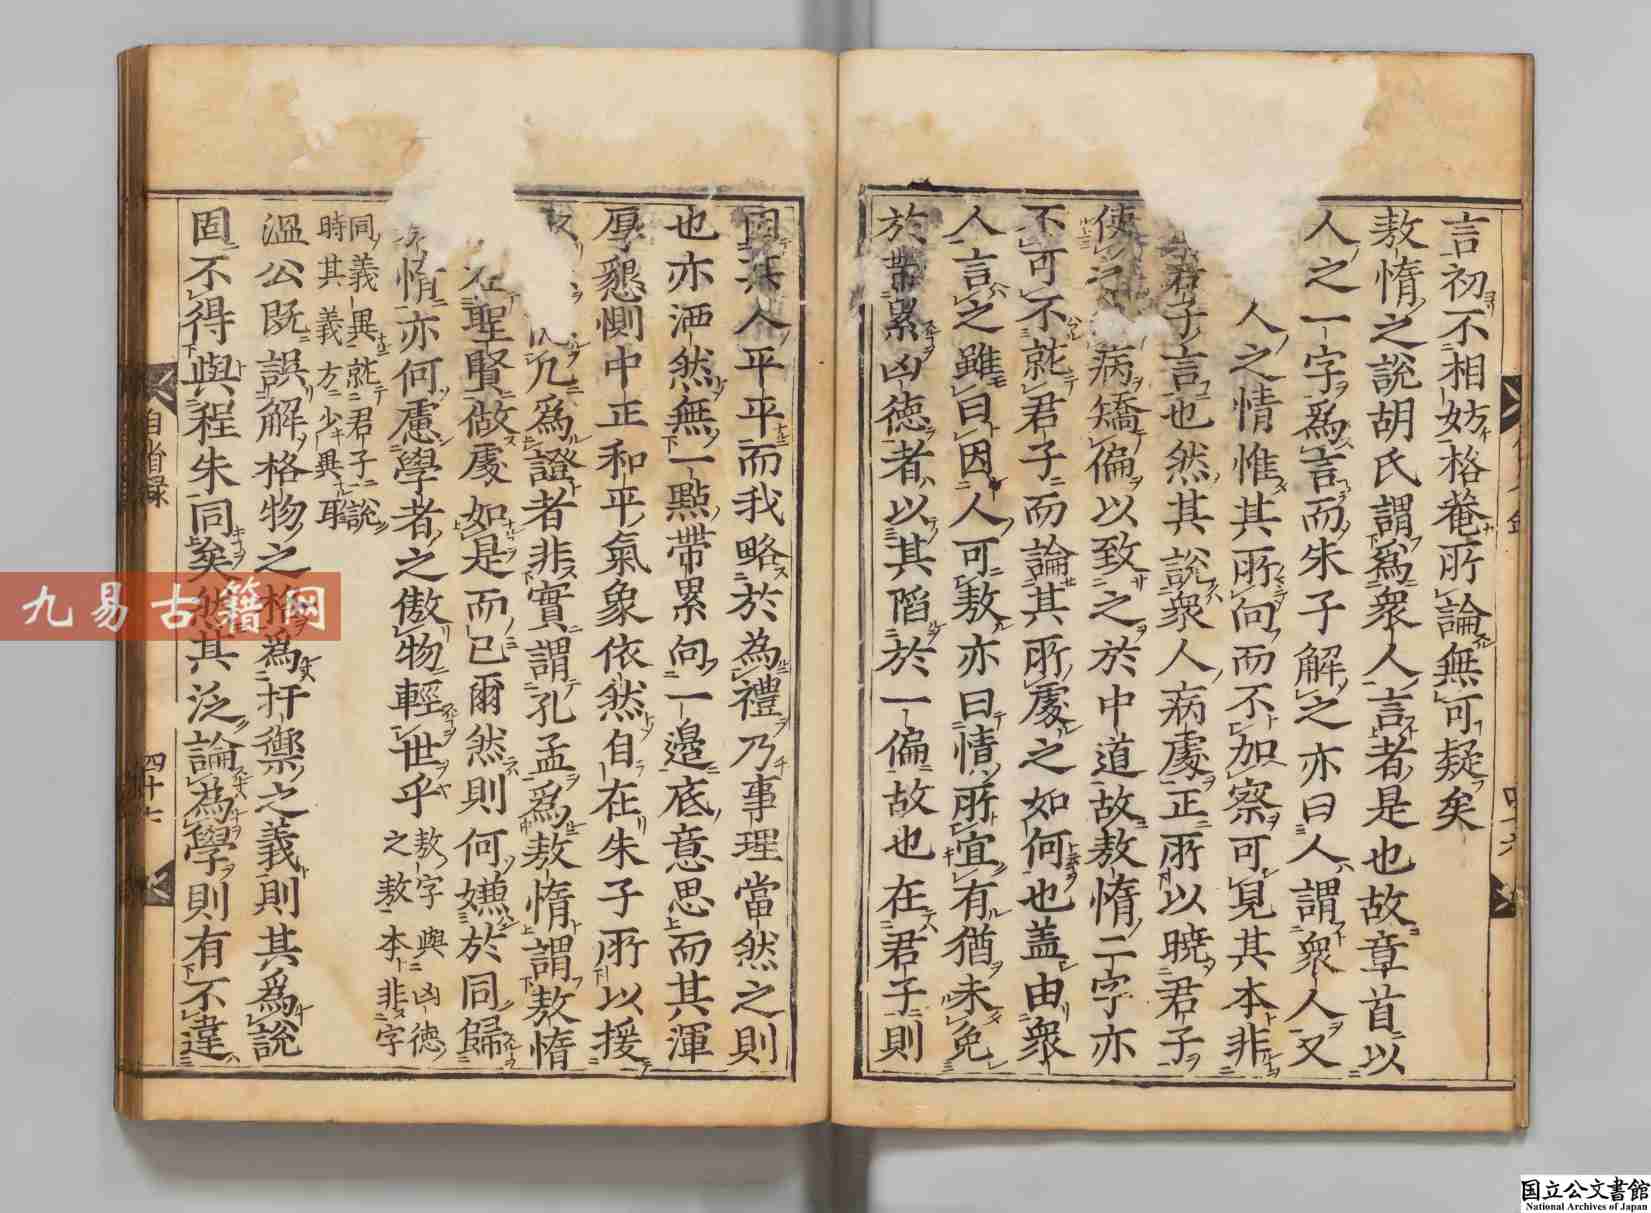 言初不相妨格菴所論無可疑矣
敖惰之說胡氏謂爲衆人言者是也故章首以
人之一字爲言而朱子解之亦曰人謂衆人又
人之情惟其所向而不加察可見其本非
君子言也然其說衆人病處正所以曉君子
使 病矯偏以致之於中道故敖惰二字亦
不可不就君子而論其所處之如何也盖由衆
人言之雖曰因人可敖亦曰情所宜有猶未免
於帶累凶德者以其陷於一偏故也在君子則
因其人平平而我略於為禮乃事理當然之則
也亦洒然無一點帶累向一邊底意思而其渾
厚懇惻中正和平氣象依然自在朱子所以援
爲證者非實謂孔孟爲敖惰謂敖惰
在聖賢做處如是而已爾然則何嫌於同歸
惰亦何慮學者之傲物輕世乎
敖字與凶德
之敖本非字
同義異就君子說
時其義方少異耳
溫公既誤解格物之格爲扞禦之義則其爲說
固不得與程朱同矣然其泛論為學則有不違
自省録
四十七
九易古籍网
国立公文書館
National Archives of Japan